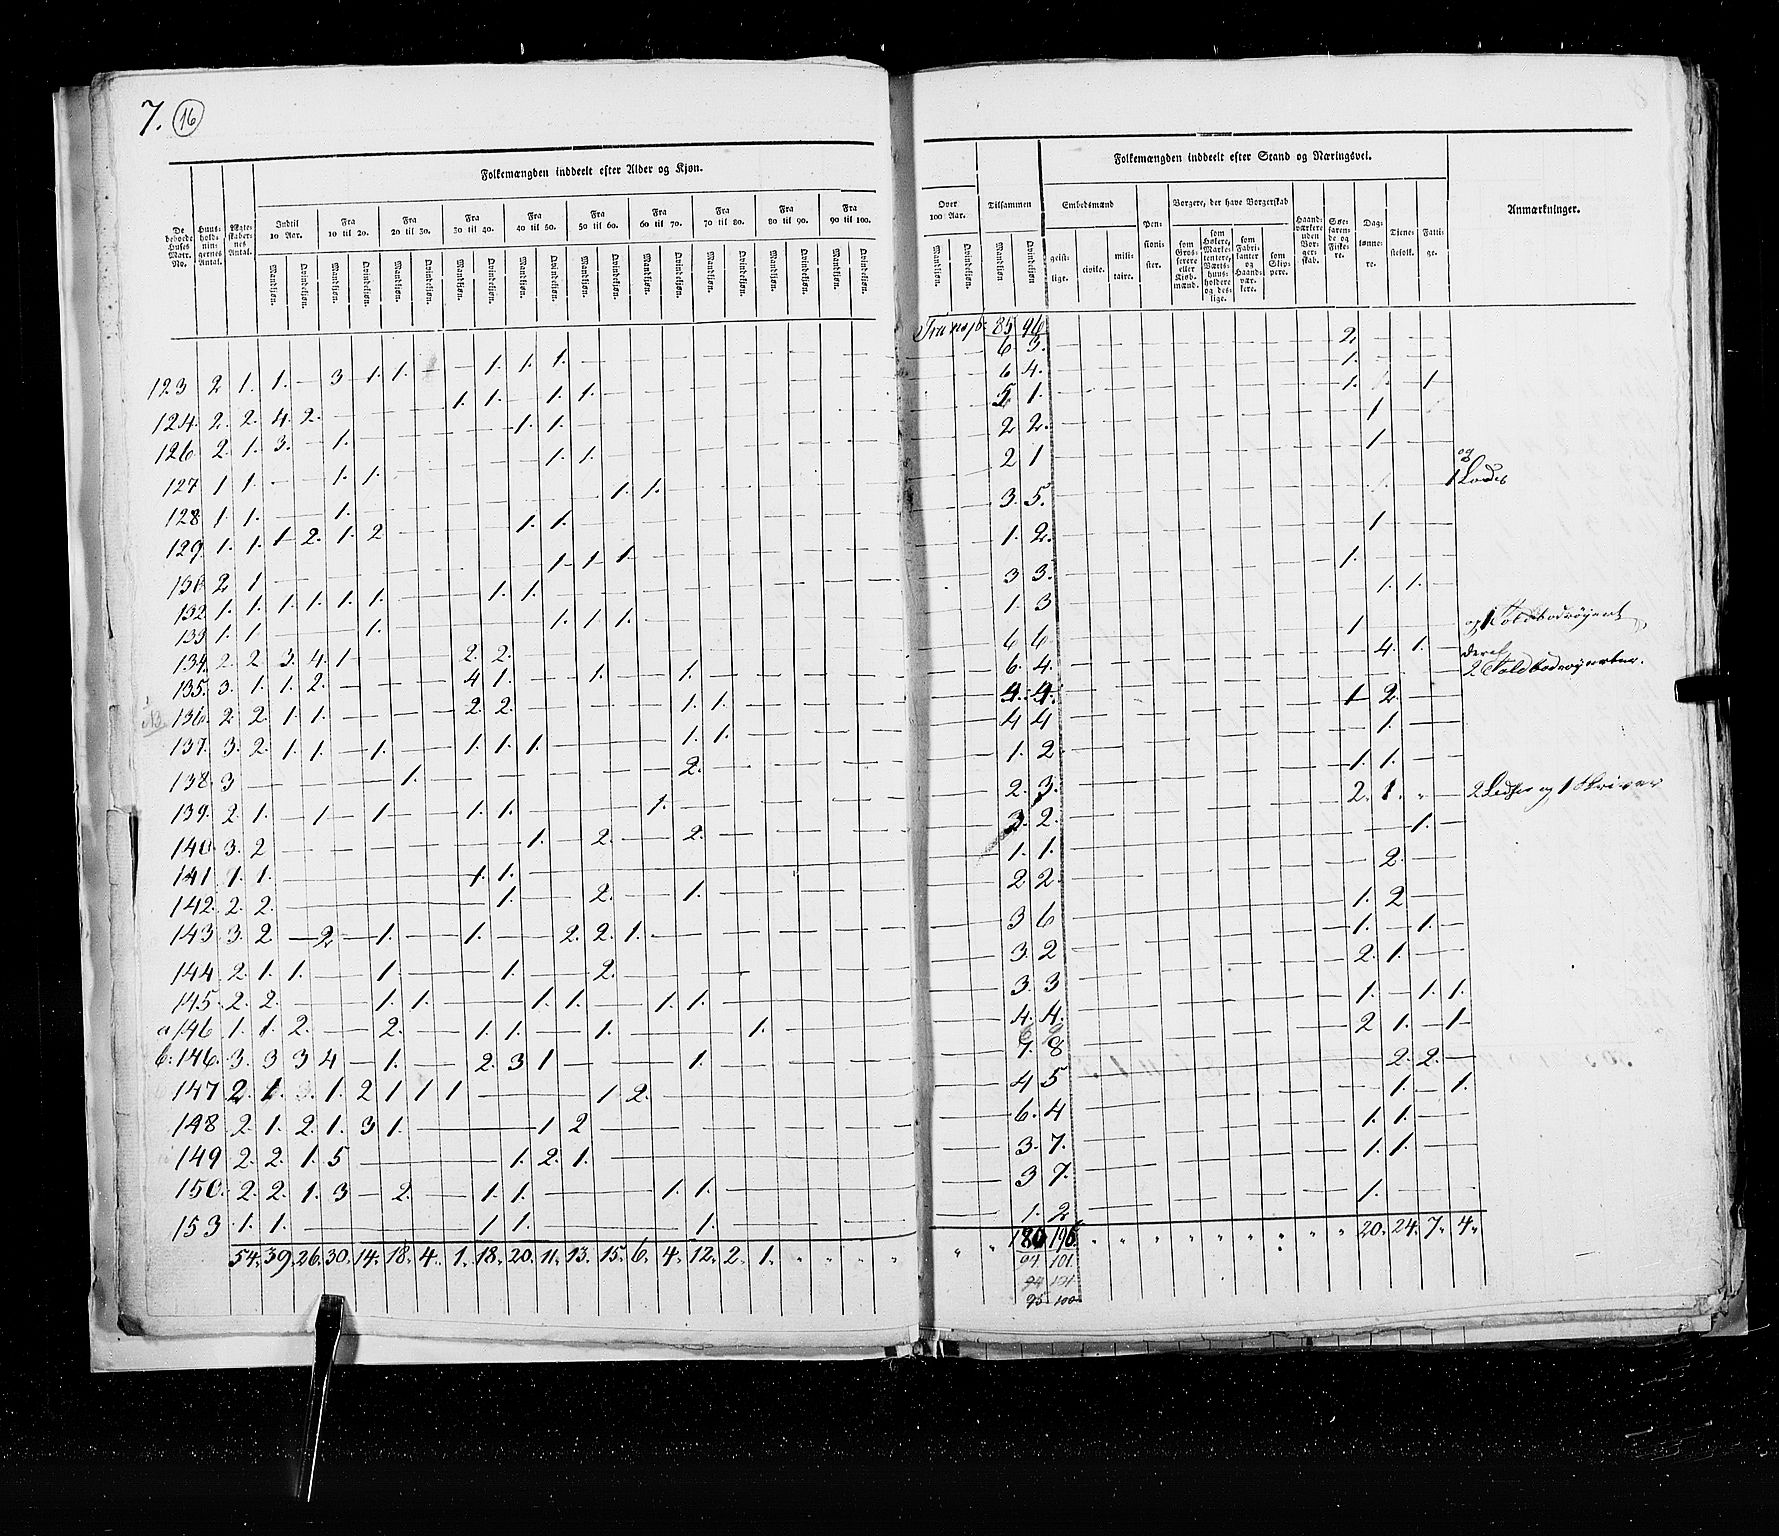 7. 16
Folkemængden inddeelt efter Alder og Kjøn.
De beboede Huses Matr. No.
Huusholdningernes Antal.
Ægteskabernes Antal.
Indtil 10 Aar.
Fra 10 til 20.
Fra 20 til 30.
Fra 30 til 40.
Fra 40 til 50.
Fra 50 til 60.
Fra 60 til 70.
Fra 70 til 80.
Fra 80 til 90.
Fra 90 til 100.
Mandkjøn. Qvindekjøn.
123 2 1. 1. — 3 1. 1. — — 1. 1. 1.
124. 2. 2. 4. 2. — 1. 1. — 1. 1.
126 2. 1. 3. — 1. — 1. 1.
127 1 1. — 1. 1. — 1. 1.
128 1. 1. — 1. — 1. 1.
129. 1. 1. 1 2. 1. 2 — 1. 1.
130 2 1 — 1 1 1.
132. 1. 1. 1. 1. 1. 1. — 1. 1.
133 1. 1 — 1. — 1. 1 1.
134. 2. 2 3. 4. 1 — 2. 2.
135. 3. 1. 1. 2. — 4 1. — 1. — 1.
136. 2. 2. 1. 1. — 2. 2. — 1. 1.
137. 3. 2. 1. 1. — 1. — 1. 1. 1. — 1. 1.
138. 3 — 1. — 2.
139. 2. 1. — 1. — 1. — 1. 1. — 1.
140 3. 2 — 1. — 2. — 2.
141 1. 1. — 1. 1.
142. 2. 2. — 1. — 2. — 1.
143 3. 2 — 2 — 1. — 1. — 2. 2. 1.
144 2. 1. 1. — 1. — 1. — 2.
145. 2. 2. — 1. 1. — 1. 1. — 1. 1.
a 146 1. 1. 2. — 2. — 1. 1. — 1. — 1.
b. 146. 3. 3 3 4 — 1. — 2. 3 1 — 1.
147 2. 1. 3. 1. 2 1 1 1 — 1 2.
148 2. 1. 2. 1. 3 1. — 1 2
149 2. 2. 1. 5 — 1. 2. 1.
150. 2. 2. 1. 3 — 2. — 1. 1. — 1. 1.
153 1. 1. — 1 1. — 1.
54. 39. 26. 30. 14. 18. 4. 1. 18. 20. 11. 13. 15. 6. 4. 12. 2. 1.
Over 100 Aar.
Tilsammen
Mandkjøn. Qvindekjøn.
Folkemængden inddeelt efter Stand og Næringsvei.
Embedsmænd
geistlige. civile. militaire.
Pensionister.
Borgere, der have Borgerskab
som Grosserere eller Kjøbmænd.
som Høkere, Marketentere, Værtshuusholdere og deslige.
som Fabrikanter og Haandværkere.
som Skippere.
Haandværkere uden Borgerskab.
Søefarende og Fiskere.
Daglønnere.
Tjenestefolk.
Fattige.
Anmærkninger.
Transp: 85 96
6. 3. 2
6 4. 1.
5 1. 1. 1
2 2. 1
2 1 1
3. 5. og 1 Lods
1. 2. 1
3 3. 1.
1. 3 1. 1.
6 6 1
6. 4. 4. 1.
4. 4. 1 2.
4 4 1.
1. 2 1. 1.
2. 3. 2. 1. 2 Lodser og 1 Skriver
3. 2. 1.
1. 1. 2.
2 2. 1. 2
3 6 1. 1.
3. 2 2. 1.
3. 3 1. 1. 1.
4. 4. 2 1. 1
7. 8 2. 2.
4 5 1. 1.
6. 4 1. 1.
3. 7. 1. 1.
3 7. 1.
1. 2
180 196 20. 24. 7. 4.
94 101.
94 101
95 100